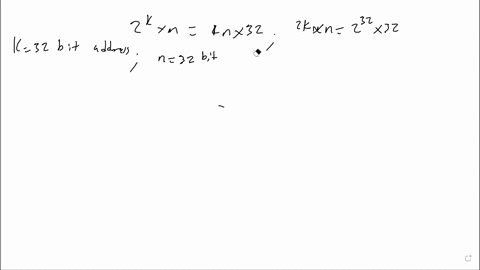 2^k × n = 4n × 32 . 2k × n = 2^32 × 32
K = 32 bit address , n = 32 bit